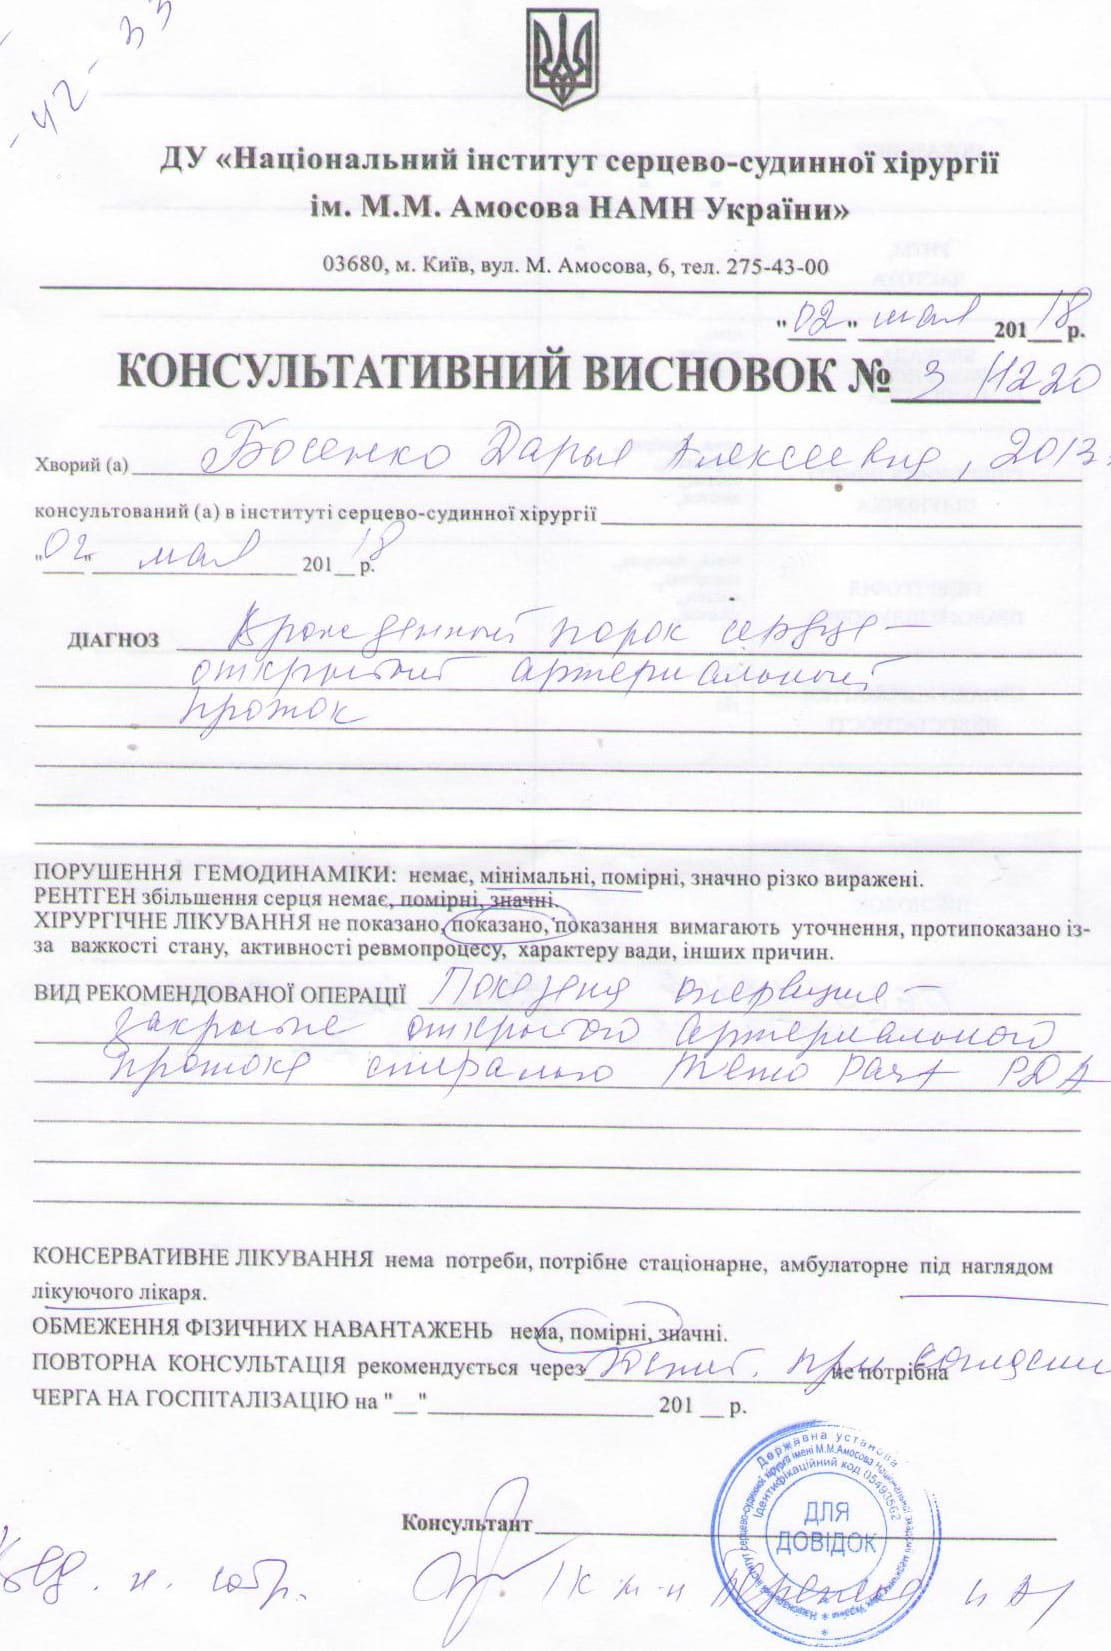 - 42 - 33
ДУ «Національний інститут серцево-судинної хірургії
ім. М.М. Амосова НАМН України»
03680, м. Київ, вул. М. Амосова, 6, тел. 275-43-00
"02" мая 2018 р.
КОНСУЛЬТАТИВНИЙ ВИСНОВОК № 3/1220
Хворий (а) Босенко Дарья Алексеевна, 2013
консультований (а) в інституті серцево-судинної хірургії
"02" мая 2018 р.
ДІАГНОЗ Врожденный порок сердца –
открытый артериальный
проток
ПОРУШЕННЯ ГЕМОДИНАМІКИ: немає, мінімальні, помірні, значно різко виражені.
РЕНТГЕН збільшення серця немає, помірні, значні.
ХІРУРГІЧНЕ ЛІКУВАННЯ не показано, показано, показання вимагають уточнення, протипоказано із-
за важкості стану, активності ревмопроцесу, характеру вади, інших причин.
ВИД РЕКОМЕНДОВАНОЇ ОПЕРАЦІЇ Показана операция –
закрытие открытого артериального
протока спиралью PDA
КОНСЕРВАТИВНЕ ЛІКУВАННЯ нема потреби, потрібне стаціонарне, амбулаторне під наглядом
лікуючого лікаря.
ОБМЕЖЕННЯ ФІЗИЧНИХ НАВАНТАЖЕНЬ нема, помірні, значні.
ПОВТОРНА КОНСУЛЬТАЦІЯ рекомендується через госпит. при согласии не потрібна
ЧЕРГА НА ГОСПІТАЛІЗАЦІЮ на "__" 201 __ р.
Консультант
Державна установа
Національний інститут серцево-судинної хірургії імені М.М.Амосова Національної академії медичних наук України
Ідентифікаційний код 05493562
ДЛЯ
ДОВІДОК
н. сотр. к м н